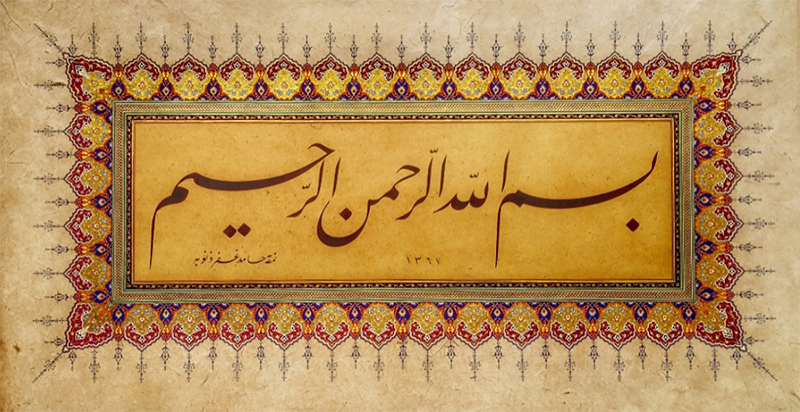 بسم الله الرحمن الرحيم
١٣٦٧
نمقه حامد غفر ذنوبه